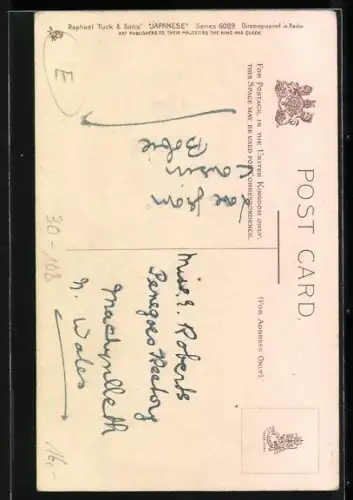 Raphael Tuck & Sons' "JAPANESE" Series 6089 Chromographed in Berlin
ART PUBLISHERS TO THEIR MAJESTIES THE KING AND QUEEN
E
POST CARD.
FOR POSTAGE, IN THE UNITED KINGDOM ONLY,
THIS SPACE MAY BE USED FOR CORRESPONDENCE.
(FOR ADDRESS ONLY).
Love from
Cousin
Bobie
Miss. E. Roberts
Penegoes Rectory
Machynlleth
N. Wales
30-108
16,-